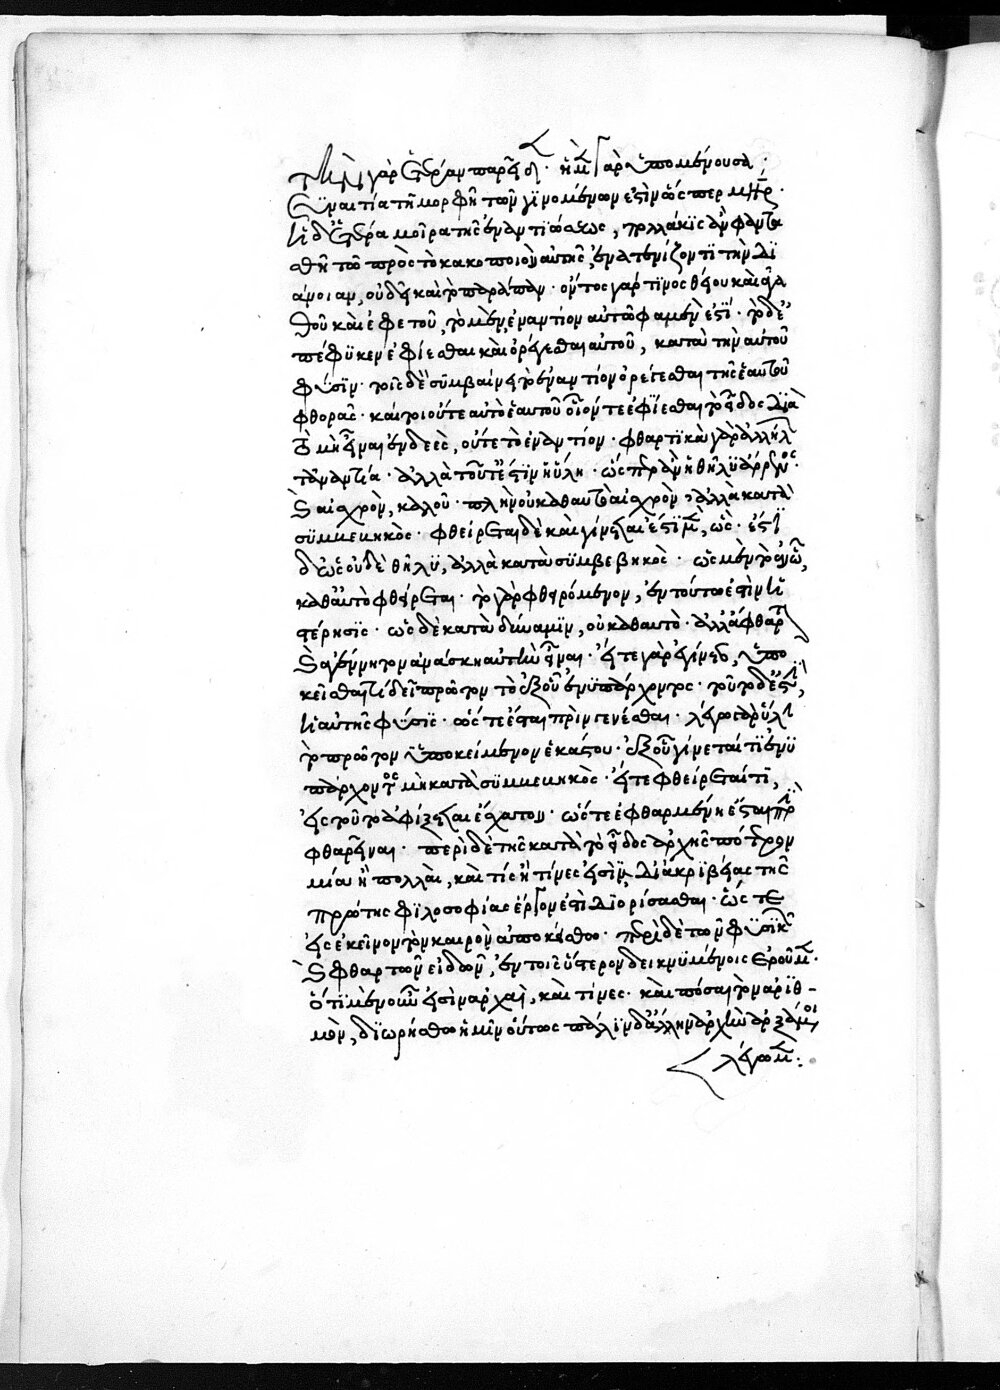 τὴν γὰρ ἑτέραν παρεῖδον· ἡ μὲν γὰρ ὑπομένουσα
συναιτία τῇ μορφῇ τῶν γινομένων ἐστὶν ὥσπερ μήτηρ·
ἡ δ' ἑτέρα μοῖρα τῆς ἐναντιώσεως, πολλάκις ἂν φαντα
σθῇ τῷ πρὸς τὸ κακοποιὸν αὐτῆς ἀτενίζοντι τὴν δι
άνοιαν, οὐδ' εἶναι τὸ παράπαν· ὄντος γάρ τινος θείου καὶ ἀγα
θοῦ καὶ ἐφετοῦ, τὸ μὲν ἐναντίον αὐτῷ φαμὲν εἶναι· τὸ δὲ ὃ
πέφυκεν ἐφίεσθαι καὶ ὀρέγεσθαι αὐτοῦ, κατὰ τὴν αὐτοῦ
φύσιν· τοῖς δὲ συμβαίνει τὸ ἐναντίον ὀρέγεσθαι τῆς ἑαυτοῦ
φθορᾶς· καίτοι οὔτε αὐτὸ ἑαυτοῦ οἷόν τε ἐφίεσθαι τὸ εἶδος διὰ
τὸ μὴ εἶναι ἐνδεὲς, οὔτε τὸ ἐναντίον· φθαρτικὰ γὰρ ἀλλήλων
τὰ ἐναντία· ἀλλὰ τοῦτ' ἔστιν ἡ ὕλη· ὥσπερ ἂν ἡ θῆλυ ἄρρενος·
καὶ αἰσχρὸν, καλοῦ· πλὴν οὐ καθαυτὸ αἰσχρὸν, ἀλλὰ κατὰ
συμβεβηκός· φθείρεται δὲ καὶ γίνεται ἔστι μὲν, ὡς· ἔστι
δ' ὡς οὔ· οὐδὲ θῆλυ, ἀλλὰ κατὰ συμβεβηκός· ὡς μὲν τὸ ἐν ᾧ,
καθ' αὑτὸ φθείρεται· τὸ γὰρ φθειρόμενον, ἐν τούτω ἐστὶν ἡ
στέρησις· ὡς δὲ κατὰ δύναμιν, οὐ καθαυτὸ· ἀλλ' ἄφθαρτον
καὶ ἀγέννητον ἀνάγκη αὐτὴν εἶναι· εἴτε γὰρ ἐγίνετο, ὑπο
κεῖσθαί τι δεῖ πρῶτον τὸ ἐξ οὗ ἐνυπάρχοντος· τοῦτο δέ ἐστιν
ἡ αὐτῆς φύσις· ὥστε ἔσται πρὶν γενέσθαι· λέγω γὰρ ὕλην
τὸ πρῶτον ὑποκείμενον ἑκάστου· ἐξ οὗ γίνεταί τι ἐνυ
πάρχοντος μὴ κατὰ συμβεβηκός· εἴτε φθείρεταί τι,
εἰς τοῦτο ἀφίξεται ἔσχατον· ὥστε ἐφθαρμένη ἔσται πρὶν
φθαρῆναι· περὶ δὲ τῆς κατὰ τὸ εἶδος ἀρχῆς πότερον
μία ἢ πολλαὶ, καὶ τίς ἢ τίνες εἰσὶν, δι' ἀκριβείας τῆς
πρώτης φιλοσοφίας ἔργον ἐστὶ διορίσασθαι· ὥστε
εἰς ἐκεῖνον τὸν καιρὸν ἀποκείσθω· περὶ δὲ τῶν φυσικῶν
καὶ φθαρτῶν εἰδῶν, ἐν τοῖς ὕστερον δεικνυμένοις ἐροῦμεν·
ὅτι μὲν οὖν εἰσὶν ἀρχαὶ, καὶ τίνες· καὶ πόσαι τὸν ἀριθ-
μὸν, διωρίσθω ἡμῖν οὕτως πάλιν δ' ἄλλην ἀρχὴν ἀρξάμενοι
λέγωμεν: